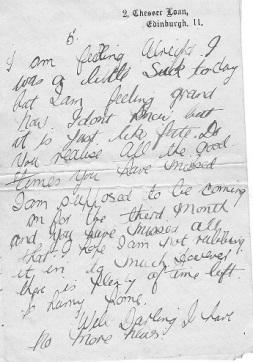 2, Chesser Loan,
Edinburgh, 11.
5.
I am feeling alright. I
was a little sick today
but I am feeling grand
now. I dont know but
it is just like fate. Do
you realise all the good
times you have missed
I am supposed to be coming
on for the third month
and you have missed all
that. I hope I am not rubbing
it in to much however
there is plenty of time left
Well Darling I have
no more news.